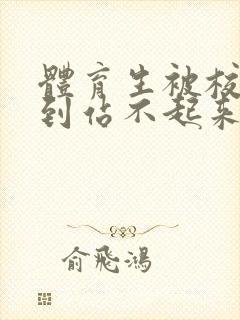 體育生被校
到佔不起來
俞飛鴻